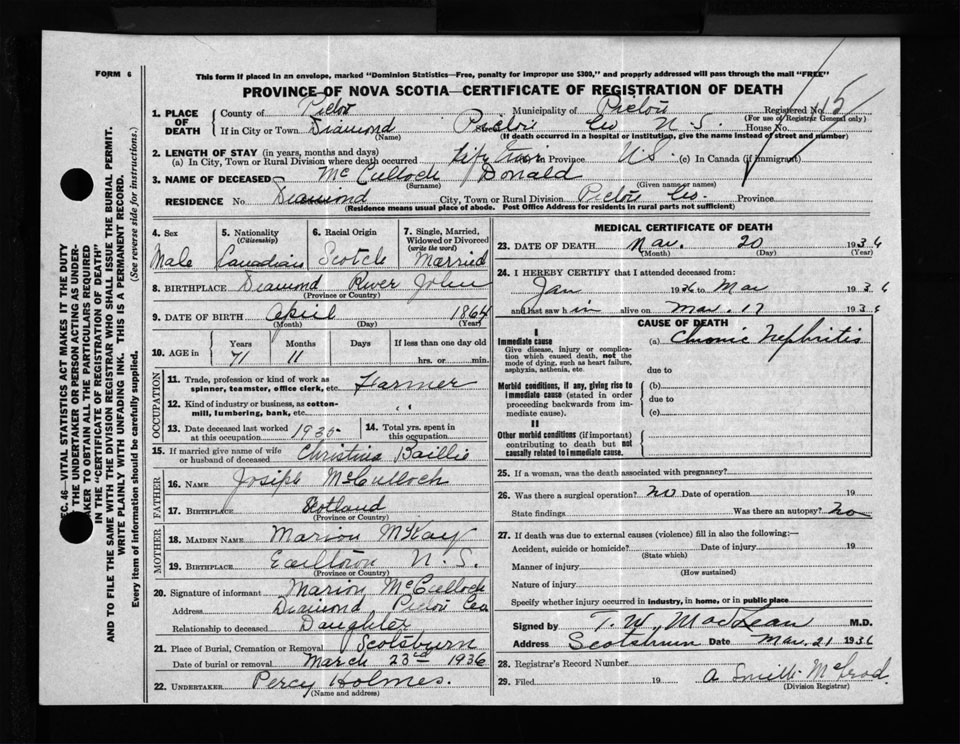 FORM 6
This form if placed in an envelope, marked "Dominion Statistics—Free, penalty for improper use $300," and properly addressed will pass through the mail "FREE"
PROVINCE OF NOVA SCOTIA—CERTIFICATE OF REGISTRATION OF DEATH
1. PLACE OF DEATH
County of Pictou Municipality of Pictou Registered No. 15
(For use of Registrar General only)
If in City or Town Diamond Pictou Co N. S. House No.
(Name) (If death occurred in a hospital or institution, give the name instead of street and number)
2. LENGTH OF STAY (in years, months and days)
(a) In City, Town or Rural Division where death occurred in Province N.S. (c) In Canada (if immigrant)
3. NAME OF DECEASED McCulloch Donald
(Surname) (Given name or names)
RESIDENCE No Diamond City, Town or Rural Division Pictou Co. Province
(Residence means usual place of abode. Post Office Address for residents in rural parts not sufficient)
4. Sex Male
5. Nationality (Citizenship) Canadian
6. Racial Origin Scotch
7. Single, Married, Widowed or Divorced (write the word) Married
8. BIRTHPLACE Diamond River John
(Province or Country)
9. DATE OF BIRTH April 1864
(Month) (Day) (Year)
10. AGE in Years Months Days If less than one day old
71 11 hrs. or min.
OCCUPATION
11. Trade, profession or kind of work as spinner, teamster, office clerk, etc. Farmer
12. Kind of industry or business, as cotton-mill, lumbering, bank, etc. " "
13. Date deceased last worked at this occupation 1935
14. Total yrs. spent in this occupation
15. If married give name of wife or husband of deceased Christina Baillie
FATHER
16. NAME Joseph McCulloch
17. BIRTHPLACE Scotland
(Province or Country)
MOTHER
18. MAIDEN NAME Marion McKay
19. BIRTHPLACE Earltown N. S.
(Province or Country)
20. Signature of informant Marion McCulloch
Address Diamond Pictou Co
Relationship to deceased Daughter
21. Place of Burial, Cremation or Removal Scotsburn
Date of burial or removal March 23rd 1936
22. UNDERTAKER Percy Holmes.
(Name and address)
MEDICAL CERTIFICATE OF DEATH
23. DATE OF DEATH Mar. 20 1936
(Month) (Day) (Year)
24. I HEREBY CERTIFY that I attended deceased from:
Jan 1936 to Mar 1936
and last saw him alive on Mar. 17 1936
CAUSE OF DEATH
I
Immediate cause
Give disease, injury or complication which caused death, not the mode of dying, such as heart failure, asphyxia, asthenia, etc.
(a) Chronic Nephritis
due to
Morbid conditions, if any, giving rise to immediate cause (stated in order proceeding backwards from immediate cause).
(b)
due to
(c)
II
Other morbid conditions (if important) contributing to death but not causally related to immediate cause.
25. If a woman, was the death associated with pregnancy?
26. Was there a surgical operation? no Date of operation 19
State findings Was there an autopsy? no
27. If death was due to external causes (violence) fill in also the following:—
Accident, suicide or homicide? Date of injury 19
(State which)
Manner of injury
(How sustained)
Nature of injury
Specify whether injury occurred in industry, in home, or in public place
Signed by T. W. MacLean M.D.
Address Scotsburn Date Mar. 21 1936
28. Registrar's Record Number
29. Filed 19 A Smith McLeod
(Division Registrar)
SEC. 46—VITAL STATISTICS ACT MAKES IT THE DUTY
OF THE UNDERTAKER OR PERSON ACTING AS UNDER-
TAKER TO OBTAIN ALL THE PARTICULARS REQUIRED
IN THE "CERTIFICATE OF REGISTRATION OF DEATH"
AND TO FILE THE SAME WITH THE DIVISION REGISTRAR WHO SHALL ISSUE THE BURIAL PERMIT.
WRITE PLAINLY WITH UNFADING INK. THIS IS A PERMANENT RECORD.
Every item of information should be carefully supplied. (See reverse side for instructions.)